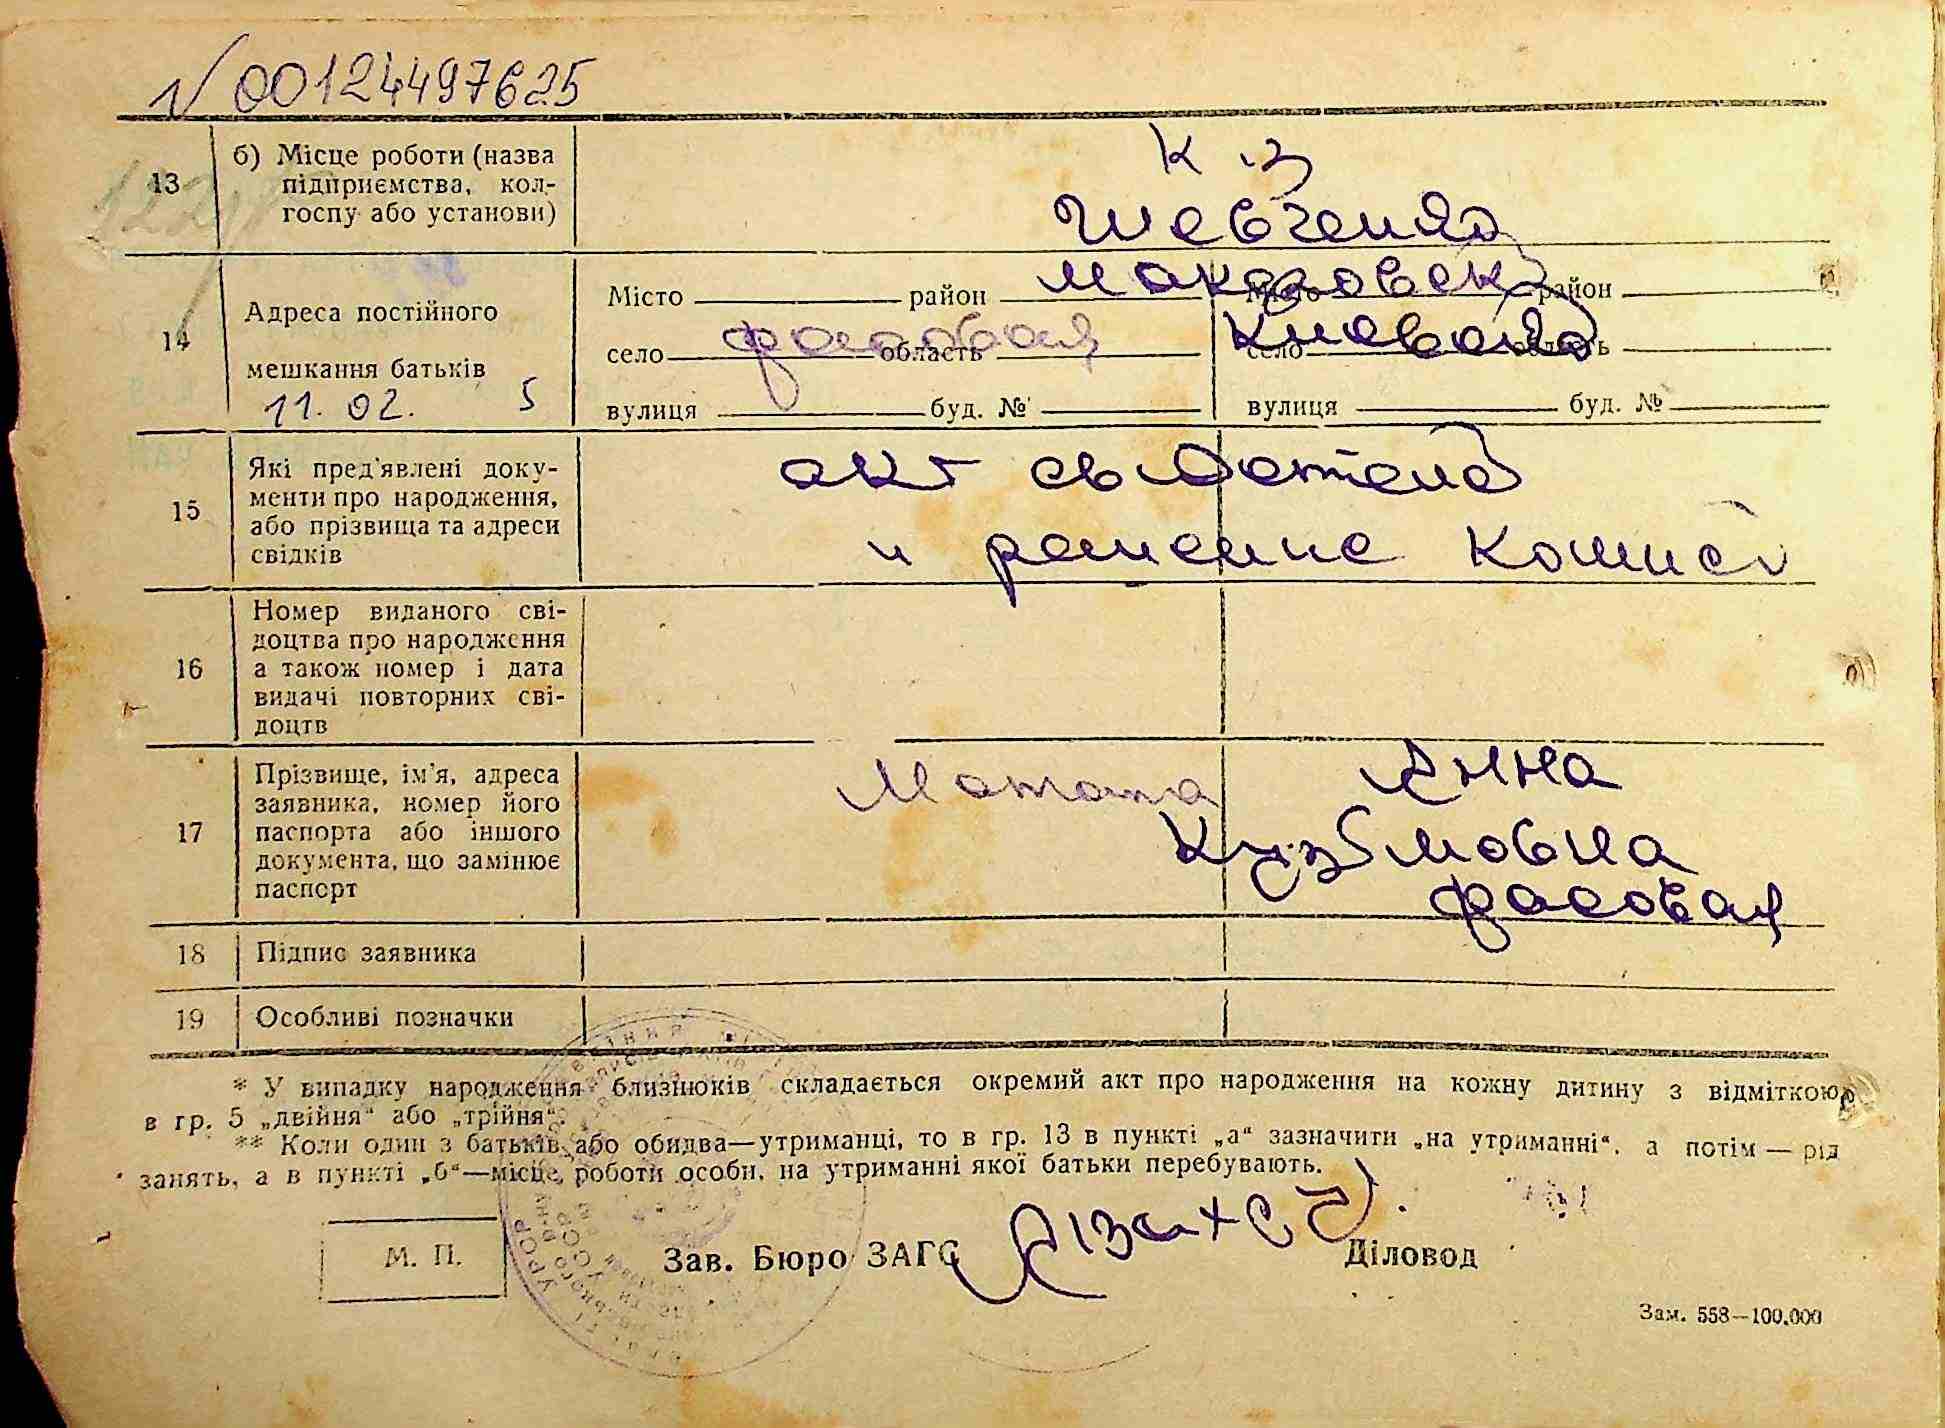 N 00124497625
13
б) Місце роботи (назва
підприємства, кол-
госпу або установи)
к-з
Шевченко
14
Адреса постійного
мешкання батьків
11. 02. 5
Місто район
Макаровск
Місто район
село Фасовая область
село Киевской область
вулиця буд. №
вулиця буд. №
15
Які пред'явлені доку-
менти про народження,
або прізвища та адреси
свідків
акт
и решение комисі
16
Номер виданого сві-
доцтва про народження
а також номер і дата
видачі повторних сві-
доцтв
17
Прізвище, ім'я, адреса
заявника, номер його
паспорта або іншого
документа, що замінює
паспорт
Анна
Кузьмовна
Фасовая
18
Підпис заявника
19
Особливі позначки
* У випадку народження близнюків складається окремий акт про народження на кожну дитину з відміткою
в гр. 5 „двійня“ або „трійня“.
** Коли один з батьків або обидва—утриманці, то в гр. 13 в пункті „а“ зазначити „на утриманні“, а потім — рід
занять, а в пункті „б“—місце роботи особи, на утриманні якої батьки перебувають.
М. П.
Зав. Бюро ЗАГС
Діловод
Зам. 558—100.000